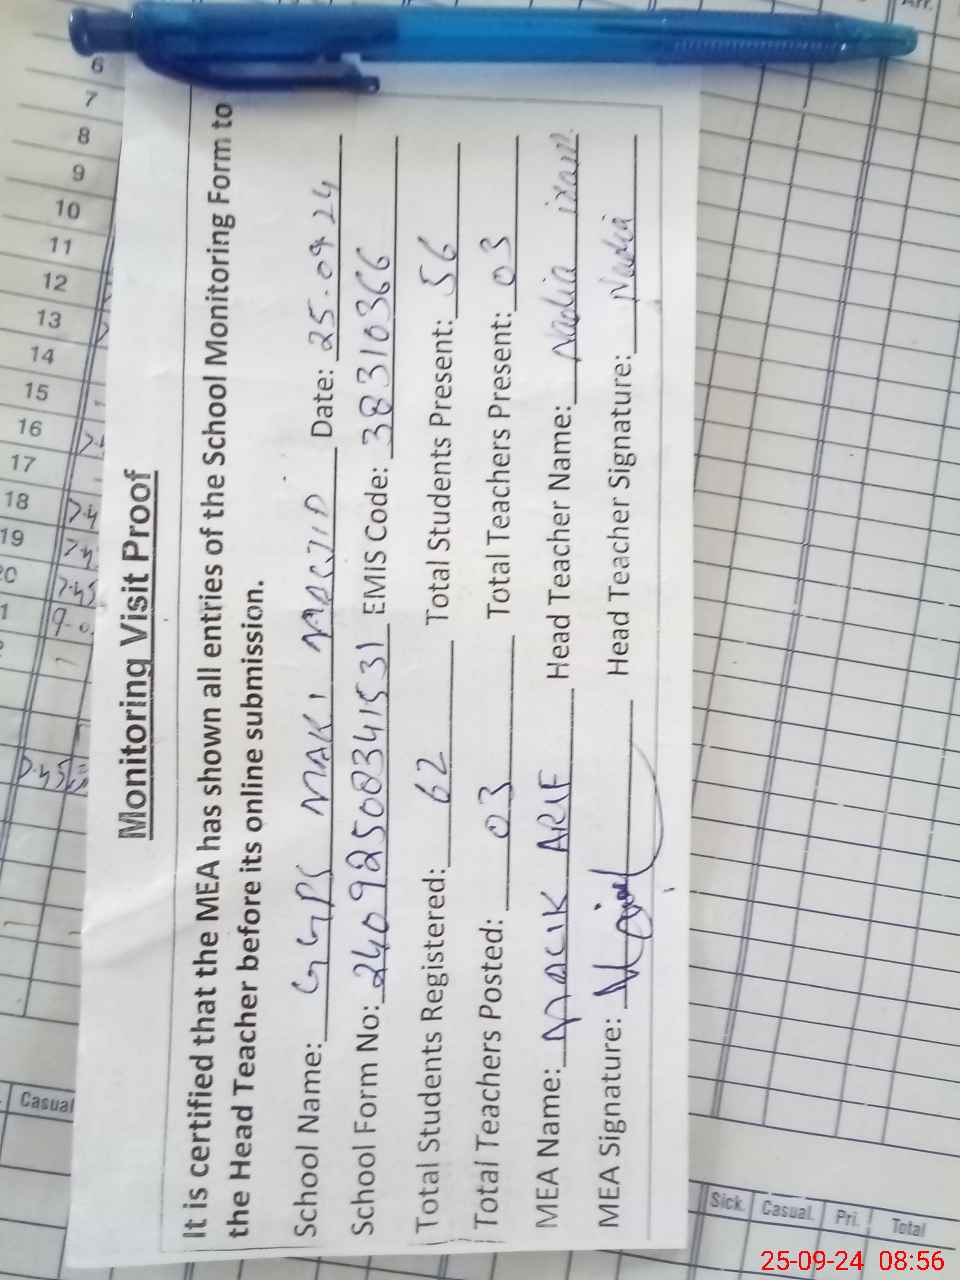 Monitoring Visit Proof
It is certified that the MEA has shown all entries of the School Monitoring Form to
the Head Teacher before its online submission.
School Name: GGPS MAKI MACJID Date: 25-09-24
School Form No: 240925083415 31 EMIS Code: 38310366
Total Students Registered: 62 Total Students Present: 56
Total Teachers Posted: 03 Total Teachers Present: 03
MEA Name: MALIK ARIF Head Teacher Name: Nadia
MEA Signature: Head Teacher Signature: Nadia
6
7
8
9
10
11
12
13
14
15
16
17
18
19
20
Casual
Sick. Casual. Pri. Total
25-09-24 08:56